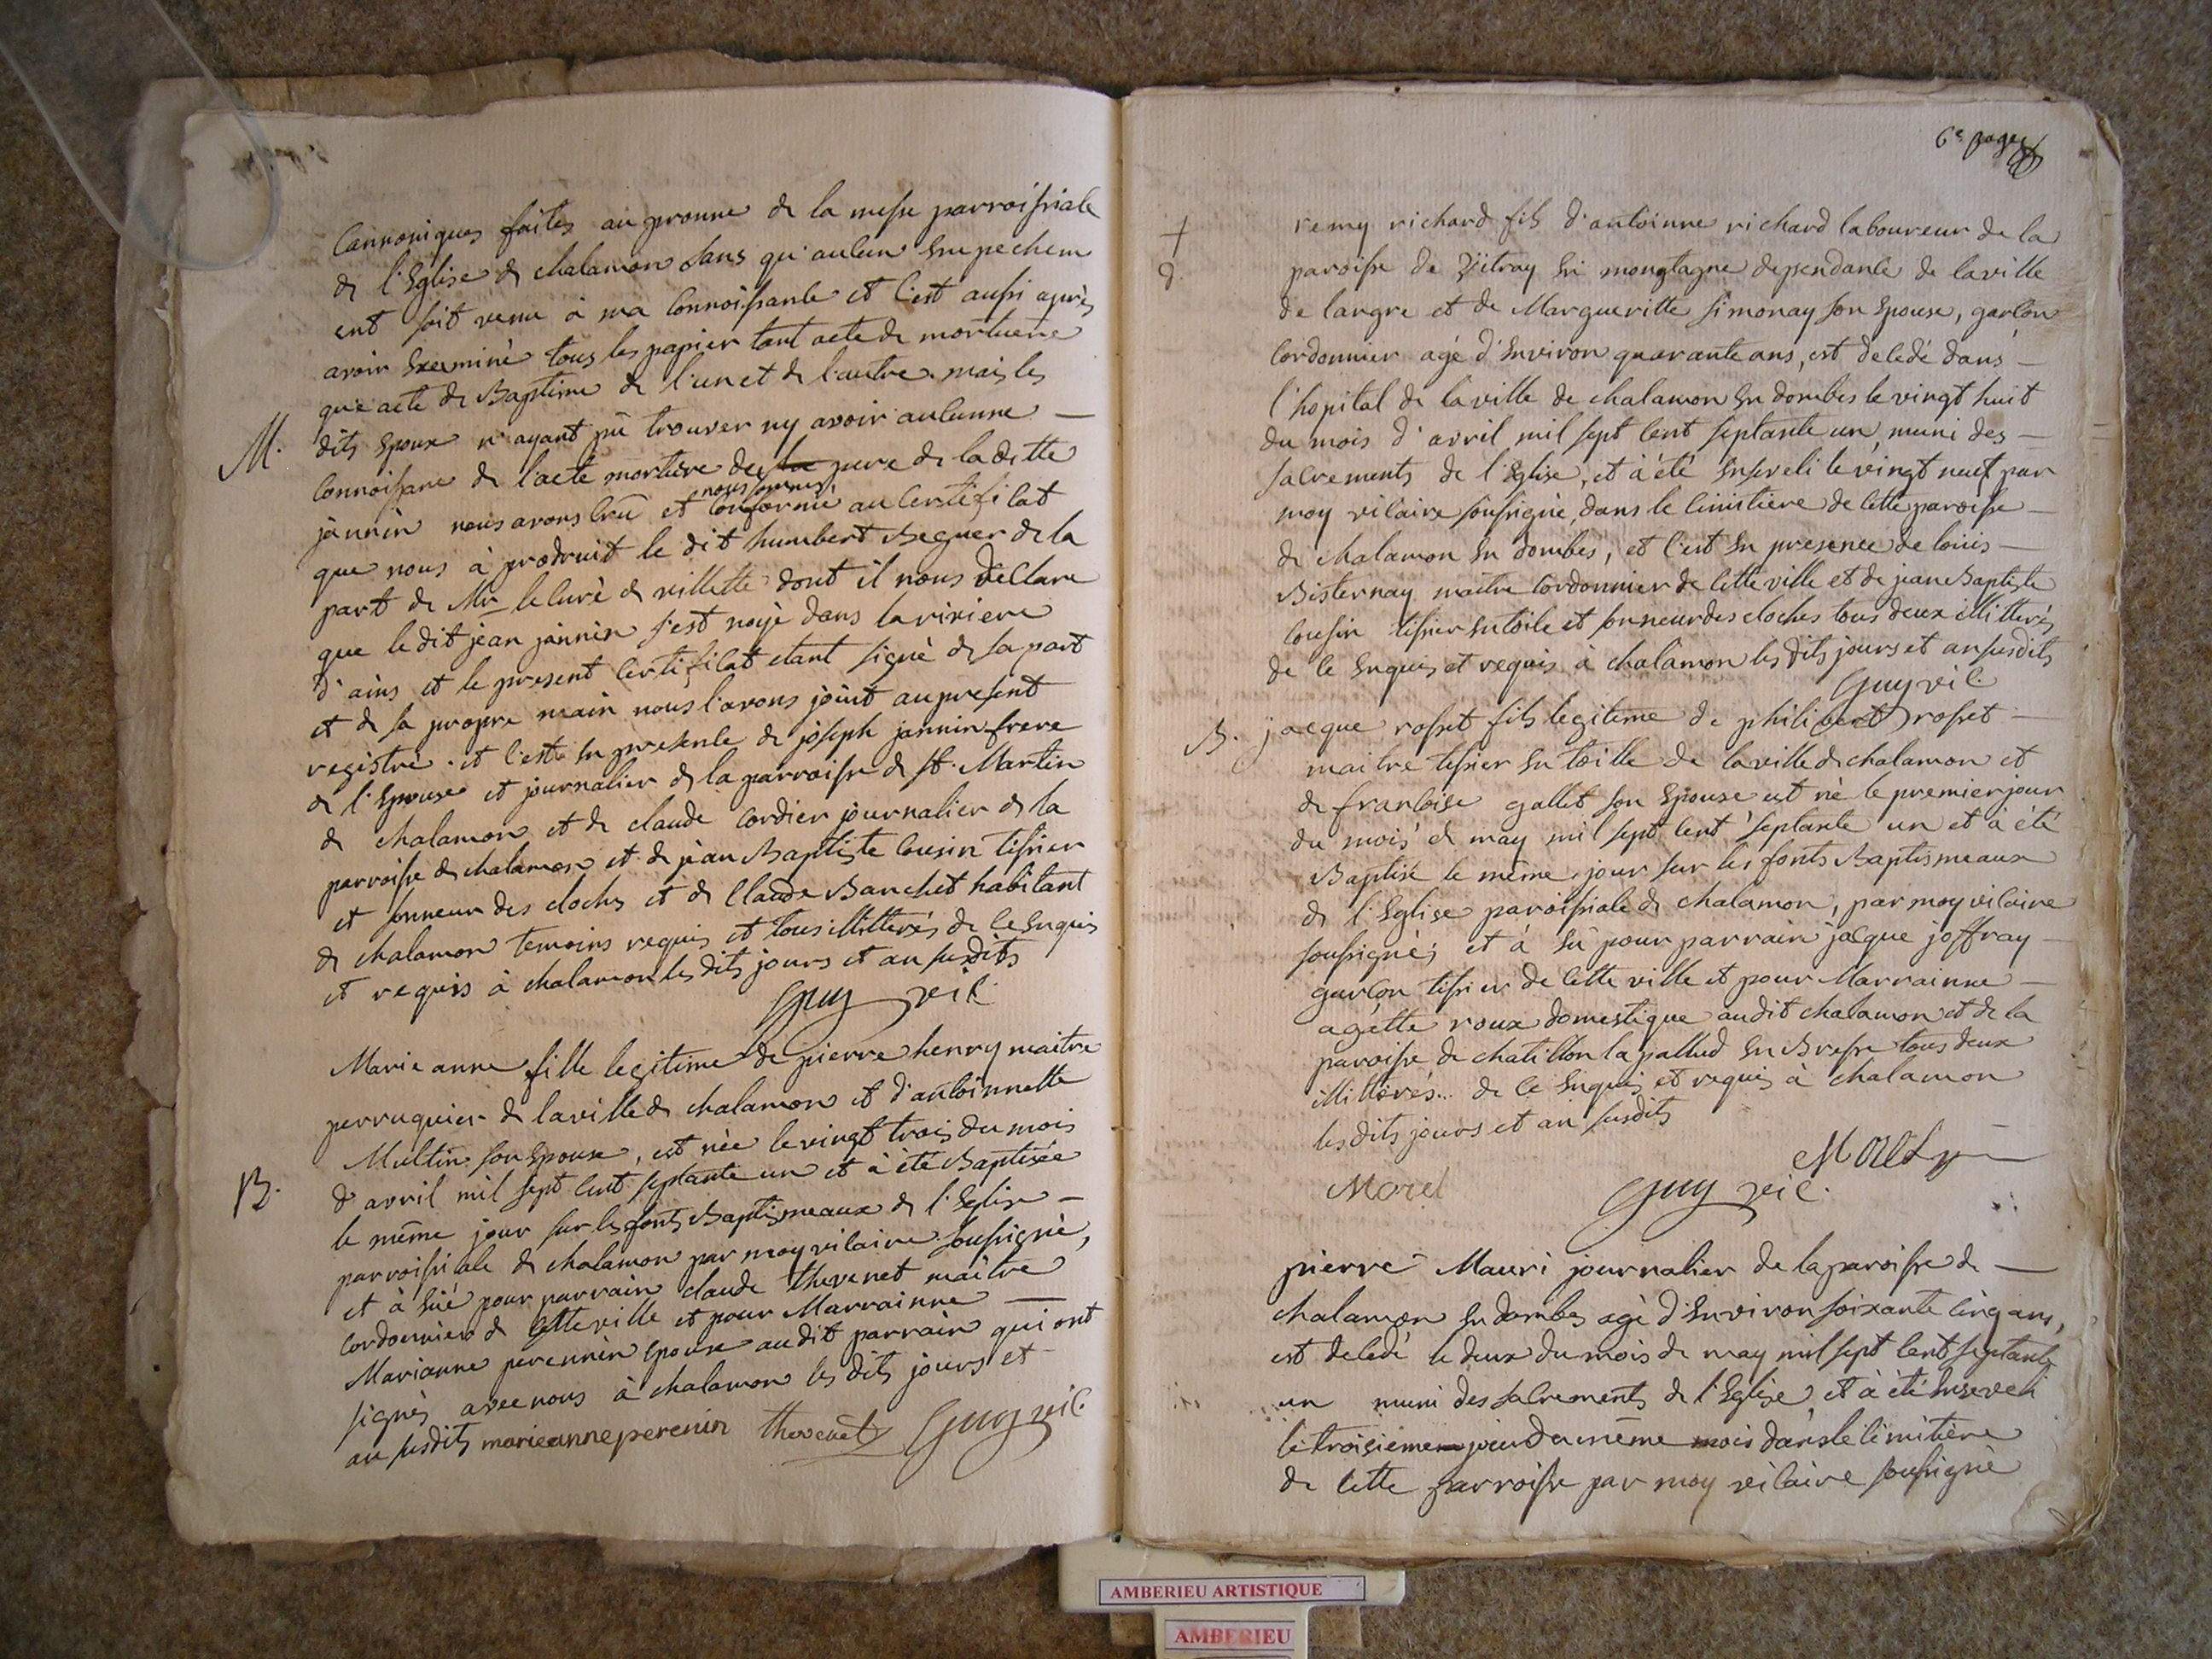 Cannoniques faites au pronne de la messe parroissiale
de l'Eglise de chalamon sans qu'aucun Empechem
ent soit venu à ma connoissance et c'est aussi après
avoir Exeminè tous les papier tant acte de mortuere
que acte de Baptême de l'un et de l'autre. mais les
M. dits Epoux n'ayant pû trouver ny avoir aucunne —
connoissanc de l'acte mortuère de la pere de la ditte
jannin nous avons crû et nous sommes conformé au certificat
que nous à produit le dit humbert Beguer de la
part de Mr le curè de villette dont il nous declare
que le dit jean jannin s'est noyè dans la riviere
d'ains et le present certificat etant signè de sa part
et de sa propre main nous l'avons joint au present
registre. et c'est en presence de joseph jannin frere
de l'Epouse et journalier de la parroisse de St. Martin
de chalamon et de claude cordier journalier de la
parroisse de chalamon et de jean Baptiste cousin tissier
et sonneur des cloches et de claude Banchet habitant
de chalamon temoins requis et tous illitterés de ce Enquis
et requis à chalamon les dits jours et an susdits
Guy vic.
Marie anne fille legitime de pierre henry maitre
perruquier de la ville de chalamon et d'antoinnette
Multin son Epouse, est née le vingt trois du mois
B. d'avril mil sept cent septante un et à été Baptisée
le même jour sur les fonts Baptismeaux de l'Eglise —
parroissiale de chalamon par moy vicaire soussigné,
et à Eüe pour parrain claude thevenet maitre
cordonnier de cette ville et pour Marrainne —
Marianne perennin Epouse audit parrain qui ont
signés avec nous à chalamon les dits jours et
an susdits marieanneperenin thevenet Guy vic.
6e page
+ remy richard fils d'antoinne richard laboureur de la
d. paroisse de En mongtagne dependante de la ville
de langre et de Margueritte simonay son Epouse, garçon
cordonnier agé d'Environ quarante ans, est decedé dans —
l'hopital de la ville de chalamon En dombes le vingt huit
du mois d'avril mil sept cent septante un, muni des —
sacrements de l'Eglise, et à été Enseveli le vingt neuf par
moy vicaire soussigné, dans le cimitiere de cette paroisse —
de chalamon En dombes, et c'est En presence de louis —
Bisternay maitre cordonnier de cette ville et de jean Baptiste
cousin tissier En toile et sonneur des cloches tous deux illitterés
de ce Enquis et requis à chalamon les dits jours et an susdits
Guy vic.
B. jacque rosset fils legitime de philibert rosset —
maitre tissier En toille de la ville de chalamon et
de francoise gallet son Epouse est né le premier jour
du mois de may mil sept cent septante un et à été
Baptisé le même jour sur les fonts Baptismeaux
de l'Eglise paroissiale de chalamon, par moy vicaire
soussignés et à Eü pour parrain jacque joffray —
garçon tissier de cette ville et pour Marrainne —
agatte roux domestique audit chalamon et de la
paroisse de chatillon la pallud En Bresse tous deux
illitterés... de ce Enquis et requis à chalamon
les dits jours et an susdits
Morel Guy vic.
pierre Mauri journalier de la paroisse de —
chalamon En dombes agè d'Environ soixante cinq ans,
est decedé le deux du mois de may mil sept cent septante
un muni des sacrements de l'Eglise, et à été Enseveli
le troisieme jour du même mois dans le cimitière
de cette parroisse par moy vicaire soussigné
AMBERIEU ARTISTIQUE
AMBERIEU